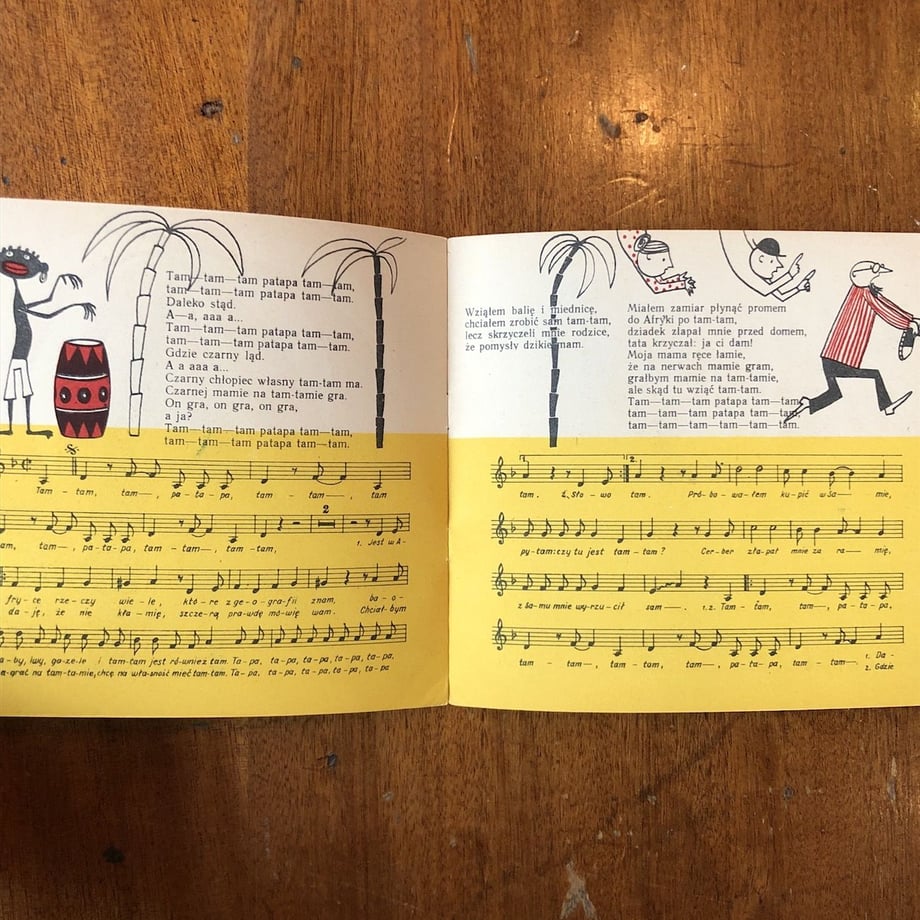 Tam—tam—tam patapa tam—tam,
tam—tam—tam patapa tam—tam.
Daleko stąd.
A—a, aaa a...
Tam—tam—tam patapa tam—tam,
tam—tam—tam patapa tam—tam.
Gdzie czarny ląd.
A a aaa a...
Czarny chłopiec własny tam-tam ma.
Czarnej mamie na tam-tamie gra.
On gra, on gra, on gra,
a ja?
Tam—tam—tam patapa tam—tam,
tam—tam—tam patapa tam—tam.
Tam - tam, tam—, pa - ta - pa, tam - tam—, tam
tam, tam—, pa-ta-pa, tam - tam—, tam - tam,
2
1. Jest w A-
fry - ce rze - czy wie - le, któ - re z ge - o - gra - fii znam, ba - o -
da - ję, że nie kła - mię, szcze - rą pra - wdę mó - wię wam. Chciał - bym
a - by, lwy, ga - ze - le i tam - tam jest ró - wnież tam. Ta - pa, ta - pa, ta - pa, ta - pa, ta - pa,
za - grać na tam - ta - mie, chcę na wła - sność mieć tam - tam. Ta - pa, ta - pa, ta - pa, ta - pa
Wziąłem balię i miednicę,
chciałem zrobić sam tam-tam,
lecz skrzyczeli mnie rodzice,
że pomysły dzikie mam.
Miałem zamiar płynąć promem
do Afryki po tam-tam,
dziadek złapał mnie przed domem,
tata krzyczał: ja ci dam!
Moja mama ręce łamie,
że na nerwach mamie gram,
grałbym mamie na tam-tamie,
ale skąd tu wziąć tam-tam.
Tam—tam—tam patapa tam—tam,
tam—tam—tam patapa tam—tam,
tam—tam—tam patapa tam—tam.
1. 2.
tam. 2. Sło - wo tam. Pró - bo - wa - łem ku - pić w Sa— mie,
py - tam: czy tu jest tam - tam? Cer - ber zła - pał mnie za ra— mię,
z Sa - mu mnie wy - rzu - cił sam—. 1. 2. Tam - tam, tam—, pa - ta - pa,
tam - tam—, tam - tam, tam—, pa - ta - pa, tam - tam -
1. Da -
2. Gdzie